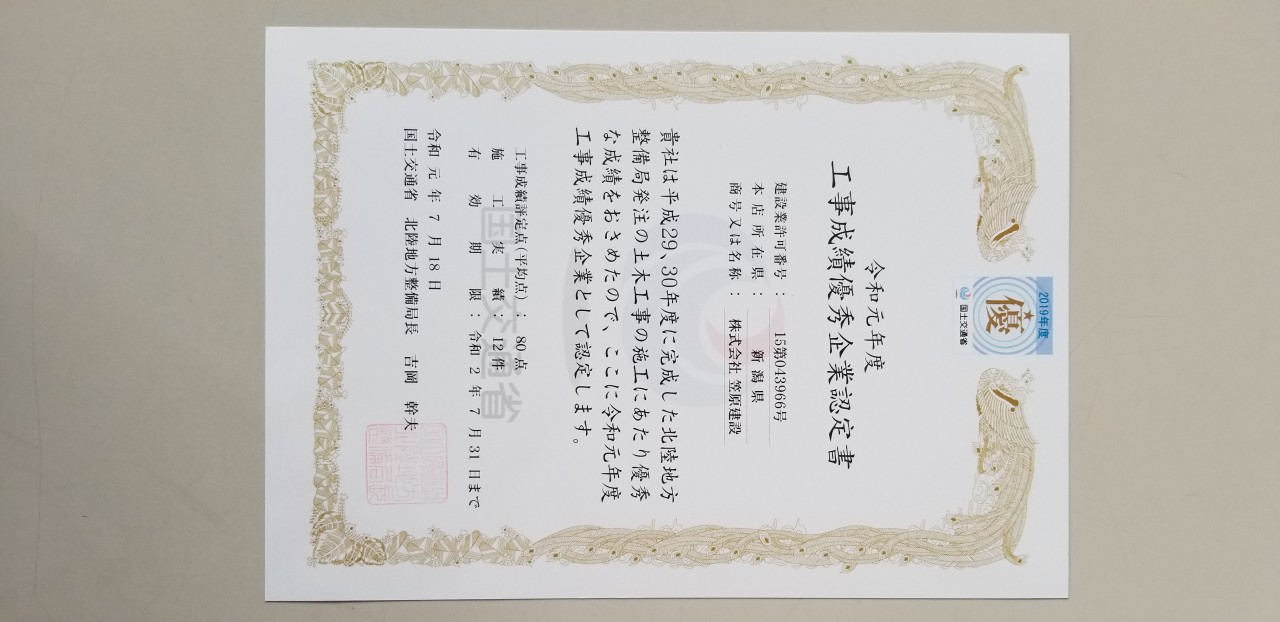 2019年度
優
国土交通省
令和元年度
工事成績優秀企業認定書
建設業許可番号： 15第043966号
本店所在県： 新潟県
商号又は名称： 株式会社 笠原建設
貴社は平成29、30年度に完成した北陸地方
整備局発注の土木工事の施工にあたり優秀
な成績をおさめたので、ここに令和元年度
工事成績優秀企業として認定します。
工事成績評定点(平均点)： 80点
施工実績： 12件
有効期限： 令和2年7月31日まで
国土交通省
令和元年7月18日
国土交通省 北陸地方整備局長 吉岡 幹夫